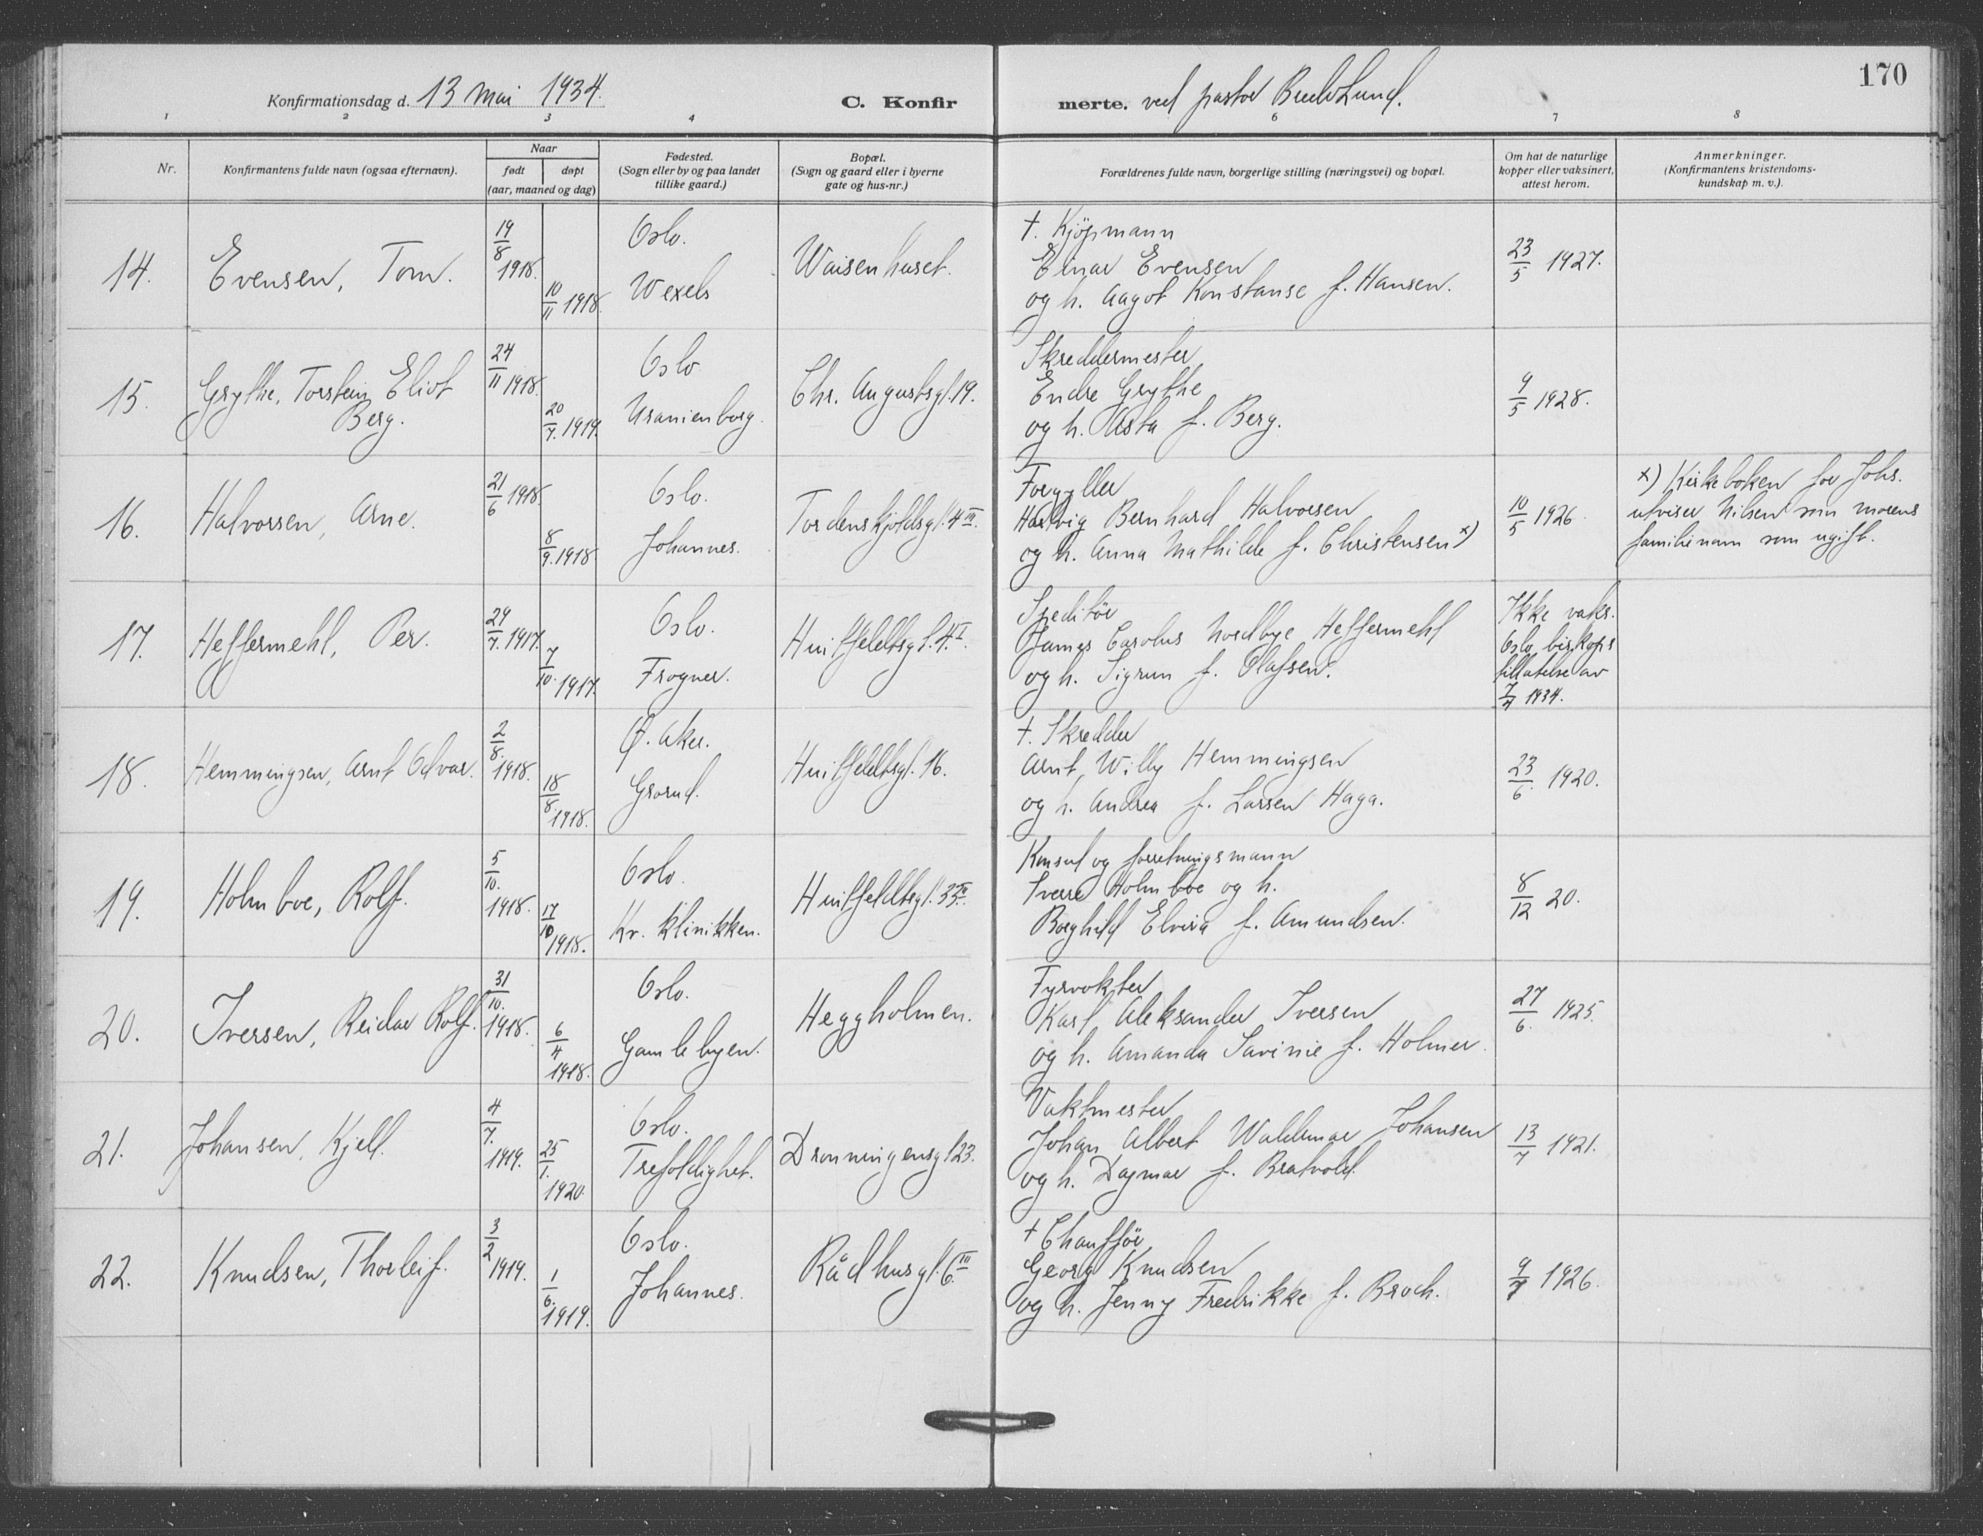 170
Konfirmationsdag d. 13 mai 1934.
C. Konfir
merte. ved pastor
1 2 3 4 6 7 8
Nr.
Konfirmantens fulde navn (ogsaa efternavn).
Naar
født
døpt
(aar, maaned og dag)
Fødested.
(Sogn eller by og paa landet
tillike gaard.)
Bopæl.
(Sogn og gaard eller i byerne
gate og hus-nr.)
Forældrenes fulde navn, borgerlige stilling (næringsvei) og bopæl.
Om hat de naturlige
kopper eller vaksinert,
attest herom.
Anmerkninger.
(Konfirmantens kristendoms-
kundskap m. v.).
14.
Evensen, Tom.
19/8 1918.
10/11 1918.
Oslo.
Wexels
Waisenhuset.
†. Kjöpmann
Einar Evensen
og h. Aagot Konstanse f. Hansen.
23/5 1927.
15.
Grythe, Torstein Eliot
Berg.
24/11 1918.
20/7. 1919.
Oslo
Uranienborg.
Chr. Augustsgt. 19.
Skreddermester
Endre Grythe
og h. Asta f. Berg.
9/5 1928.
16.
Halvorsen, Arne.
21/6 1918.
8/9. 1918
Oslo.
Johannes.
Tordenskjoldsgt. 4 III.
Forgyller
Hartvig Bernhard Halvorsen
og h. Anna Mathilde f. Christensen x)
10/5 1926.
x) Kirkeboken for Johs.
utviser Nilsen som morens
familienavn som ugift.
17.
Heffermehl, Per.
24/7. 1917.
7/10. 1917.
Oslo.
Frogner.
Huitfeldtsgt. 4. I.
Speditör
James Carolus Nordbye Heffermehl
og h. Sigrun f. Olafsen.
Ikke vaks.
Oslo biskops
tillatelse av
7/4 1934.
18.
Hemmingsen, Arnt Odvar.
2/8. 1918.
18/8. 1918.
Ø. Aker.
Grorud.
Huitfeldtsgt. 16.
†. Skredder
Arnt Willy Hemmingsen
og h. Andrea f. Larsen Haga.
23/6. 1920.
19.
Holmboe, Rolf.
5/10. 1918.
17/10 1918.
Oslo.
Kr. klinikken.
Huitfeldtsgt. 33 II.
Konsul og forretningsmann
Sverre Holmboe og h.
Borghild Elvira f. Amundsen.
8/12 20.
20.
Iversen, Reidar Rolf.
31/10. 1918.
6/4 1918.
Oslo.
Gamlebyen.
Heggholmen.
Fyrvokter
Karl Aleksander Iversen
og h. Amanda Savinie f. Holmer.
27/6. 1925.
21.
Johansen, Kjell.
4/7. 1919.
25/1. 1920.
Oslo.
Trefoldighet.
Dronningensgt 23.
Vaktmester
Johan Albert Waldemar Johansen
og h. Dagmar f. Bratvold.
13/7 1921.
22.
Knudsen, Thorleif.
3/2 1919.
1/6. 1919.
Oslo.
Johannes.
Rådhusgt. 6. III
† Chaufför
Georg Knudsen
og h. Jenny Fredrikke f. Broch.
9/7 1926.